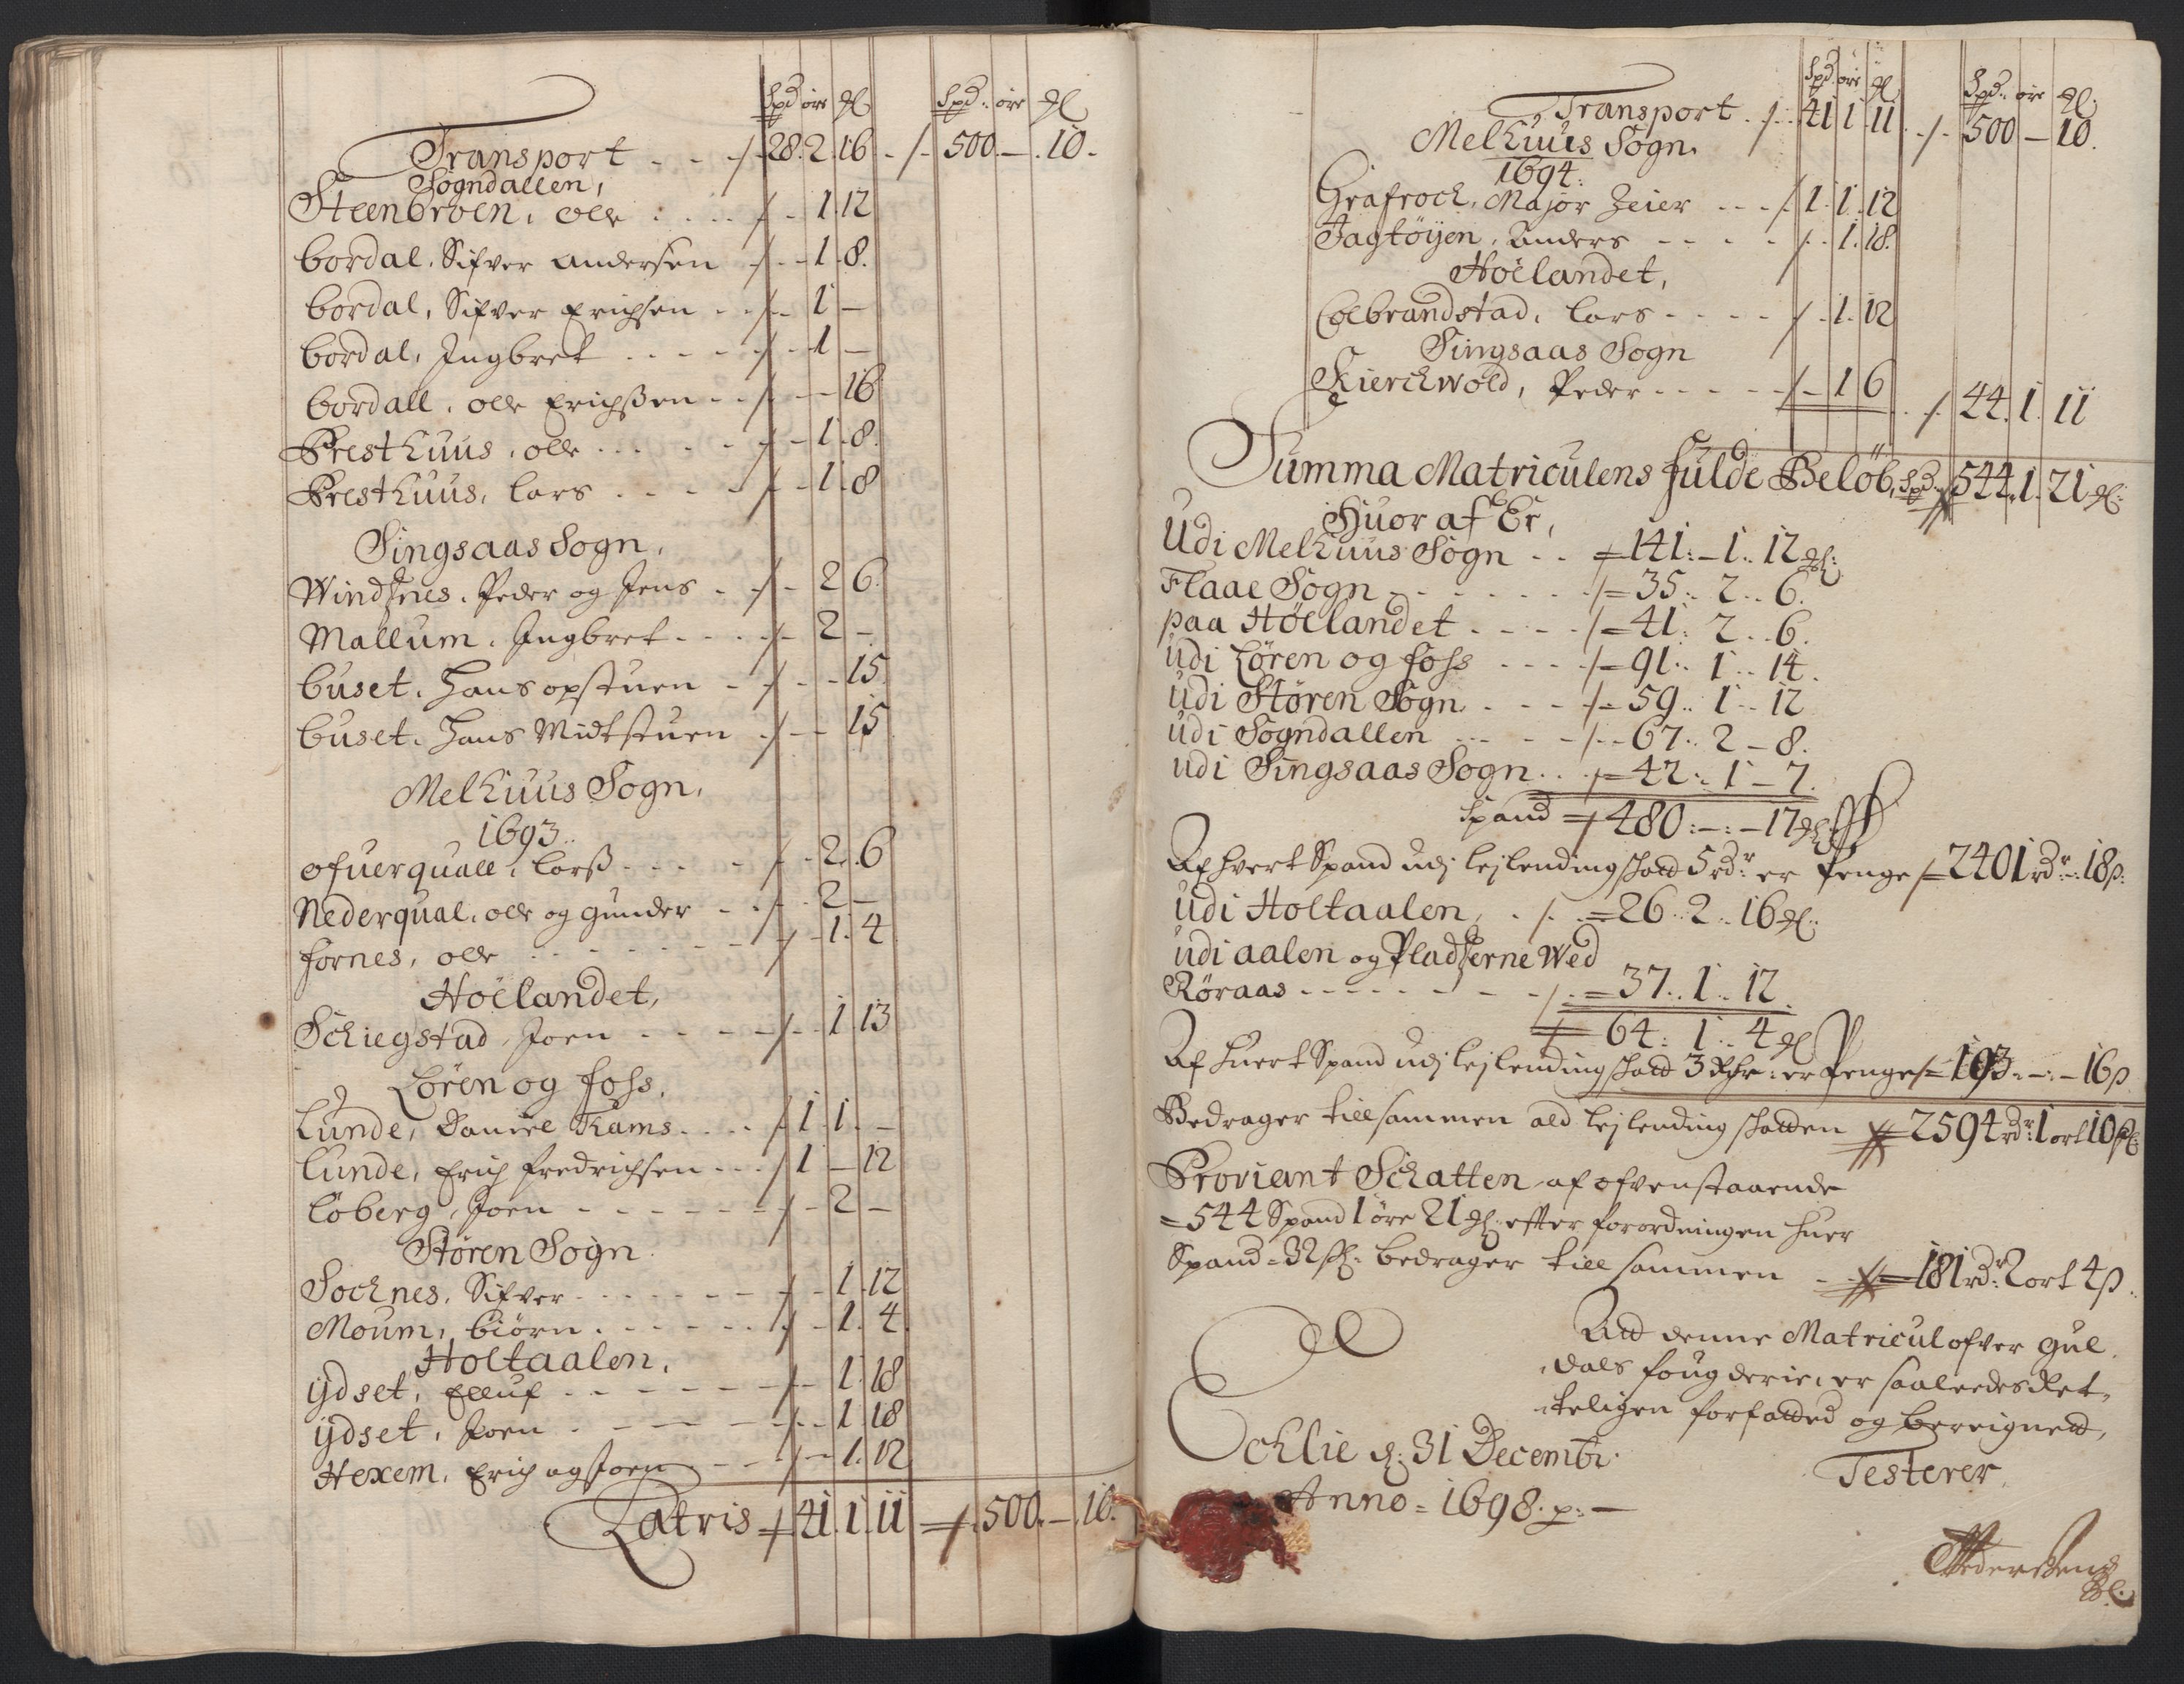 Spd öre ₰ Spd: öre ₰
Transport - - - /- 28. 2. 16 - /- 500. — . 10 -
Sogndallen,
Steenbroen, Olle . . . . /- - 1. 12
bordal. Sifver Andersen - /- - 1. 8.
bordal, Sifver Erichsen - - /- - 1 —
bordal, Ingbret . . . . - /- - 1 —
bordall, olle Erichßen - - /- - — 16
Presthuus, olle . . . . - /- - 1. 8.
Presthuus, lars . . . . - /- - 1. 8
Singsaas Sogn,
Windsnes. Peder og Jens - - /- - 2 6.
Mallum. Ingbret - - - - /- - 2 —
buset. Hans opstuen - - /- - - 15.
buset. Hans Midtstuen - /- - — 15
Melhuus Sogn,
1693..
ofuerquall, larß . . . . - /- - 2. 6
Nederqual, olle og gunder - - /- - 2 —
fornes, olle . . . . . - - /- - 1. 4
Höelandet,
Schiegstad, Joen - - - - - /- - 1. 13
Lören og foss,
Lunde, Daniel Kams. . . . /- 1. 1. —
Lunde, Erich fredrichsen - - - /- 1 — 12
Löberg, Joen - - - - - - - /- - 2 —
Stören Sogn.
Sochnes, Sifver - - - - - - - /- - 1. 12
Moum, biörn . . . . . - - /- - 1. 4.
Holtaalen,
ijdset, Elluf - - - - - - - /- - 1. 18
ijdset, Joen - - - - - - - /- - 1. 18
Hexem, Erich og Joen - - - /- - 1. 12
Latris /= 41. 1. 11 /= . 500. — . 10.
Spd öre ₰ Spd: öre ₰
Transport . /- . 41 1 11 . /- 500 — 10.
Melhuus Sogn.
1694:
Grafroch, Major Zeier - - - /. 1. 1. 12
Jagtöijen, Anders - - - - /. . 1. 18.
Höelandet,
Colbrandstad, lars - - - - /. - 1. 12
Singsaas Sogn
Kierchwold, Peder - - - - - /- - 1 6 . /- 44. 1. 11
Summa Matriculens fulde Belöb, Spd /= 544. 1. 21 ₰:
Huor af Er,
Udi Melhuus Sogn - - /= 141: – 1.. 12 ₰:
Flaae Sogn - - - - - - - /= 35.. 2.. 6.
paa Höelandet . - - - /= 41: 2.. 6.
udi Lören og foss - - - - /= 91.. 1.. 14.
udi Stören Sogn . - - - /= 59.. 1.. 12
udi Sogndallen - - - - - /- - 67.. 2 – 8.
udi Singsaas Sogn . . . /= 42.. 1 – 7.
Spand /= 480: – : – 17 ₰:
Af hvert Spand udj lejlending skatt 5 rdr: er Penge /= 2401 rdr – : 18 ß:
Udi Holtaalen, . /. . = 26.. 2.. 16 ₰:
udi aalen og Pladserne Wed
Röraas - - - - - - - - - /. = 37.. 1.. 12.
/= 64: 1.. 4 ₰
Af huert Spand udj lejlending skatt 3 Rhr: er Penge /= 193. – : – 16 ß
Bedrager tillsammen ald lejlending skatten /= 2594 rdr: 1 ort 10 ß:
Proviant Schatten af ofvenstaaende
= 544 Spand 1 öre 21 ₰: efter forordningen huer
Spand = 32 ß: bedrager till sammen - /= 181 rdr: 2 ort 4 ß.
Att denne Matricul ofver gul
dals fougderie, er saaledes Ret-
teligen forfatted og bereignett,
Testerer
Echlie d: 31 Decembr.
Anno = 1698. p: —